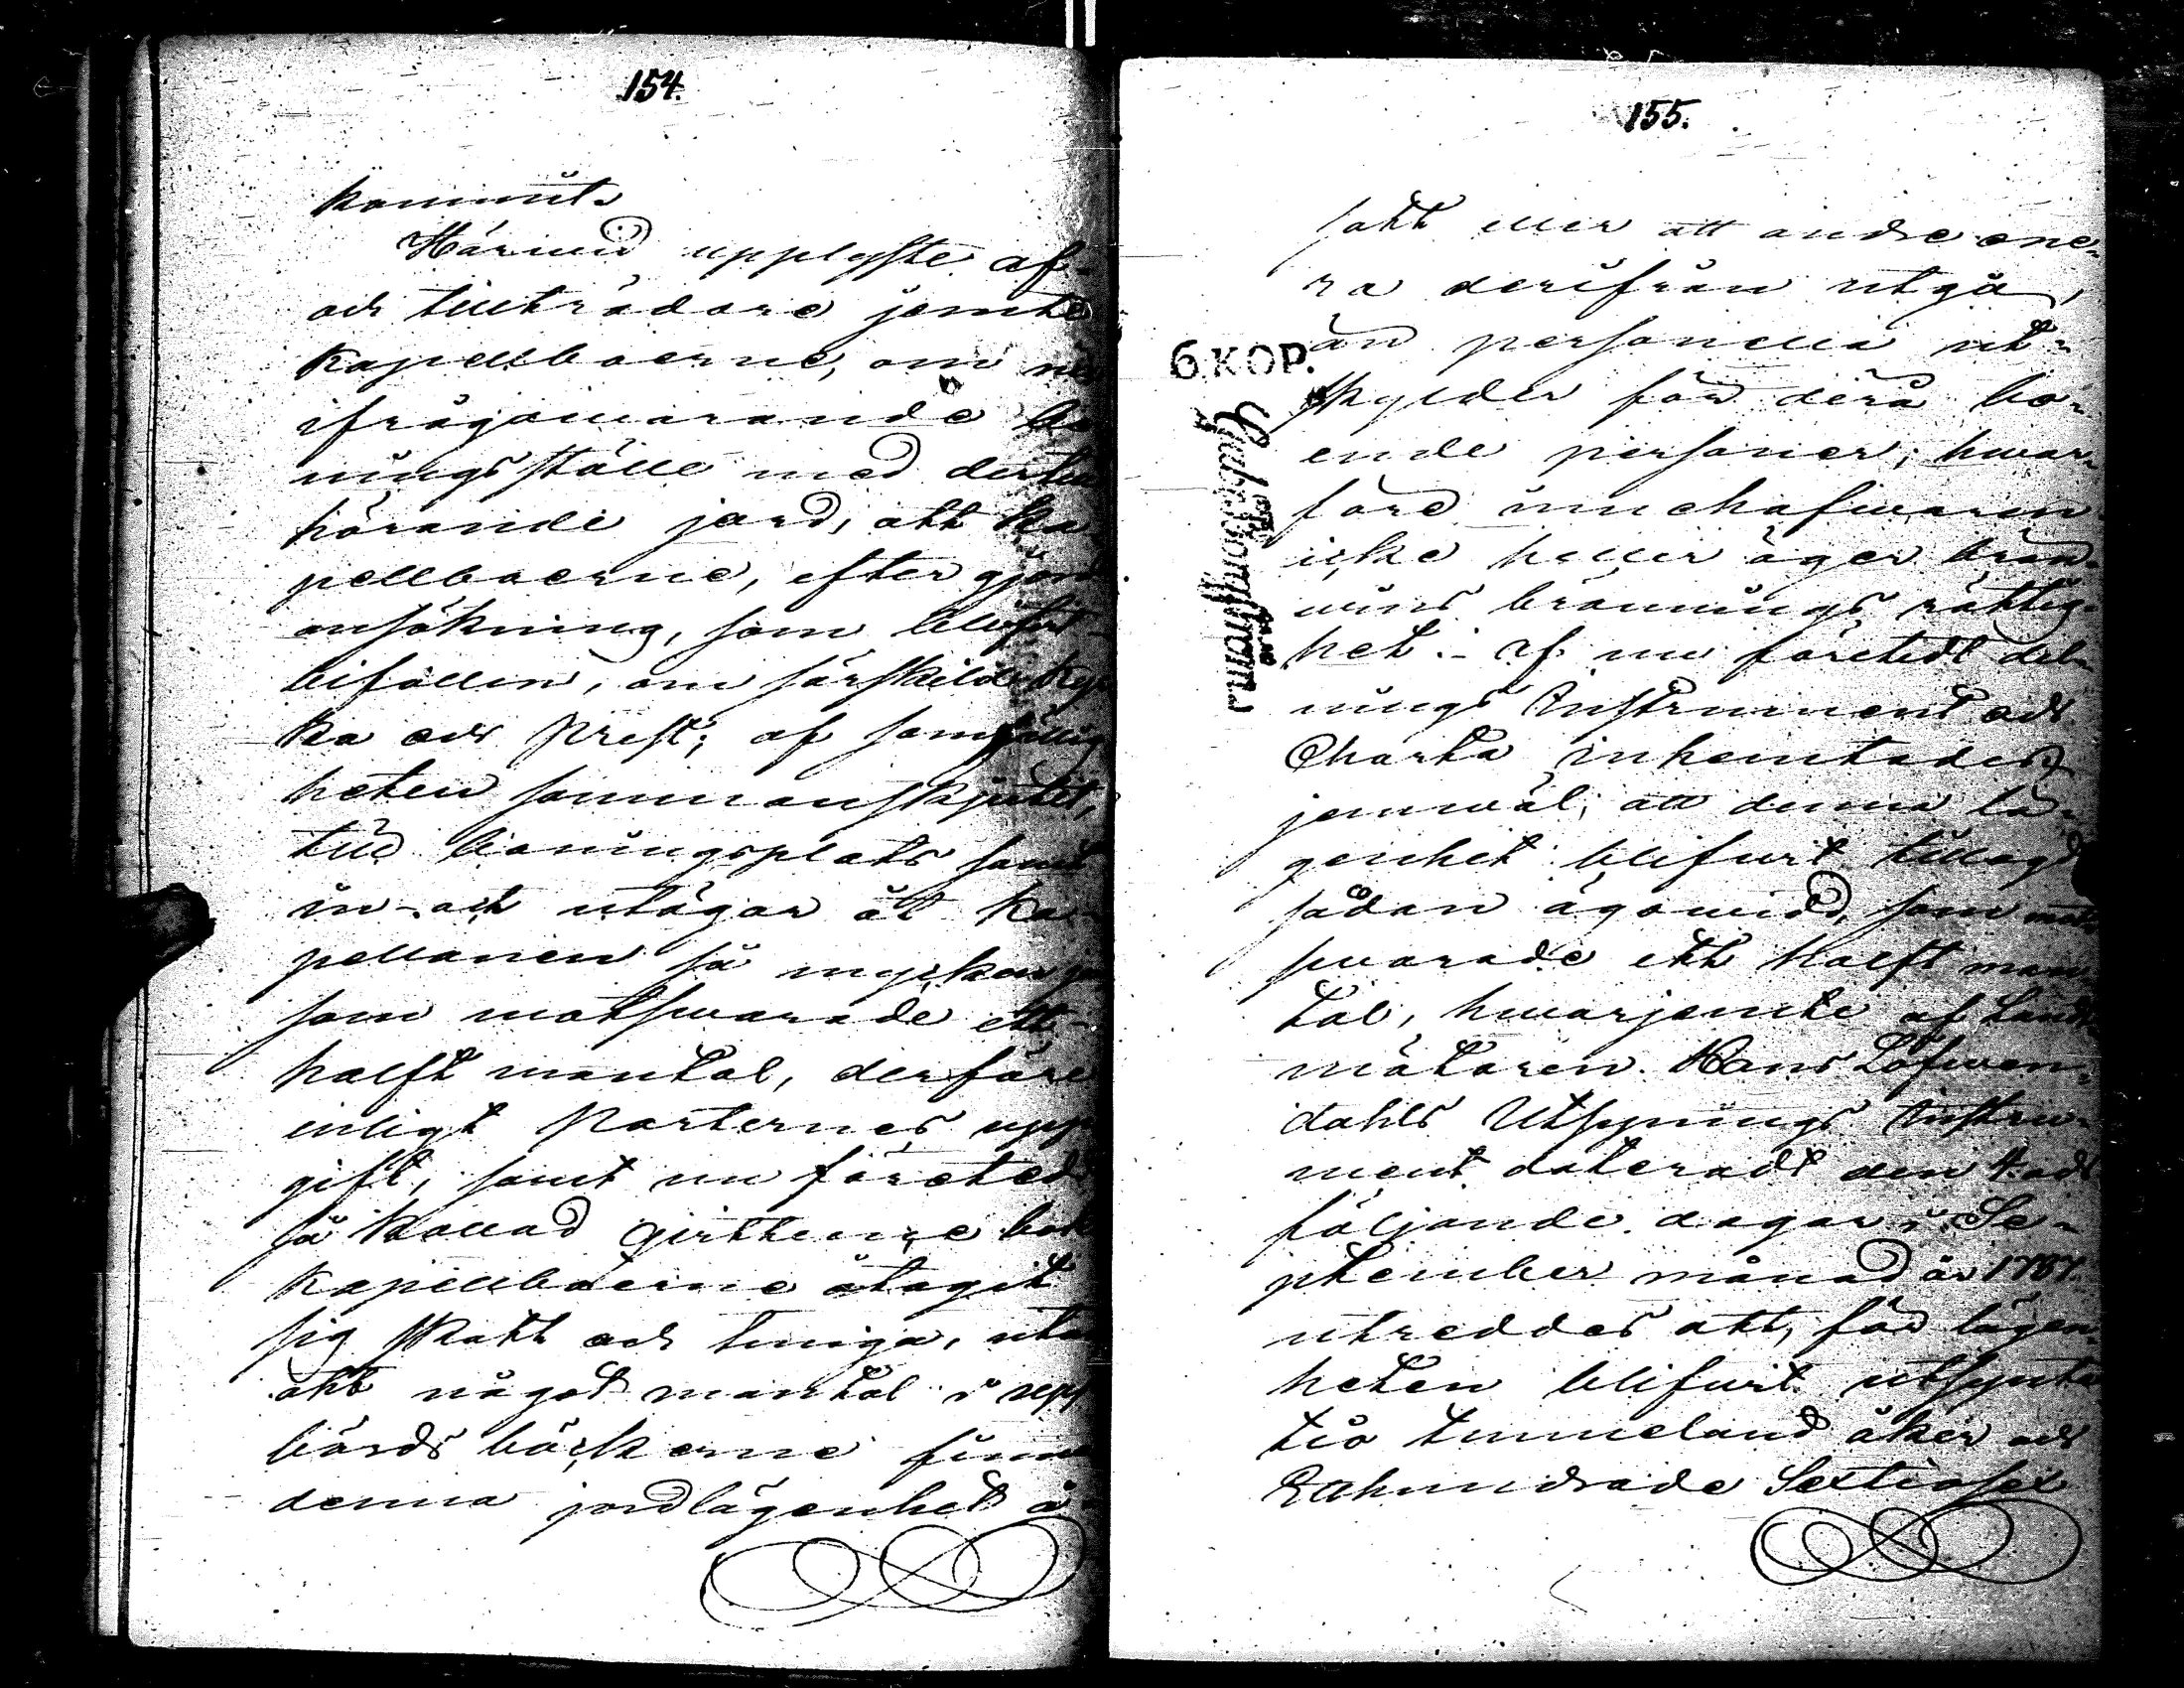 154.
kommit.
Härwid upplyste af-
och tillträdare jemte
Kapellboerne, om nu
ifrågawarande bo
ningsställe med dertill
hörande jord, att Ka-
pellboerne, efter gjord
ansökning, som blifvit
bifallen, om särskild kyr
ka och Prest; af samfällig
heten sammanskjutit,
till boningsplats samt
in- och utägor åt Ka-
pellanen så mycken jo
som motswarade ett-
halft mantal, derföre
enligt Parternes upp
gift, samt nu företedd
så kallad bok
Kapellboerne åtagit
sig skatt och tunga, utan
att något mantal i upp
börds böckerne finnes
denna jordlägenhet å-
155.
satt eller att andre one-
ra derifrån utgå,
än personella ut-
skylder för derå bo-
ende personer; hwar-
före innehafwaren
icke heller äger brän-
wins bränings rättig-
het. Af nu företedt del-
nings Instrument och
Charta inhemtades
jemwäl, att denna lä-
genhet blifwit tillagd
sådan ägowidd, som mot-
swarade ett halft man
tal, hwarjemte af Landt-
mätaren Hans Löfwen-
dahls Utsynings Instru-
ment dateradt den 4 och
följande dagar i Se-
ptember månad år 1757.
utreddes att, för lägen-
heten blifwit utsynta
tio tunneland åker och
Etthundrade Sextiosex
6 KOP.